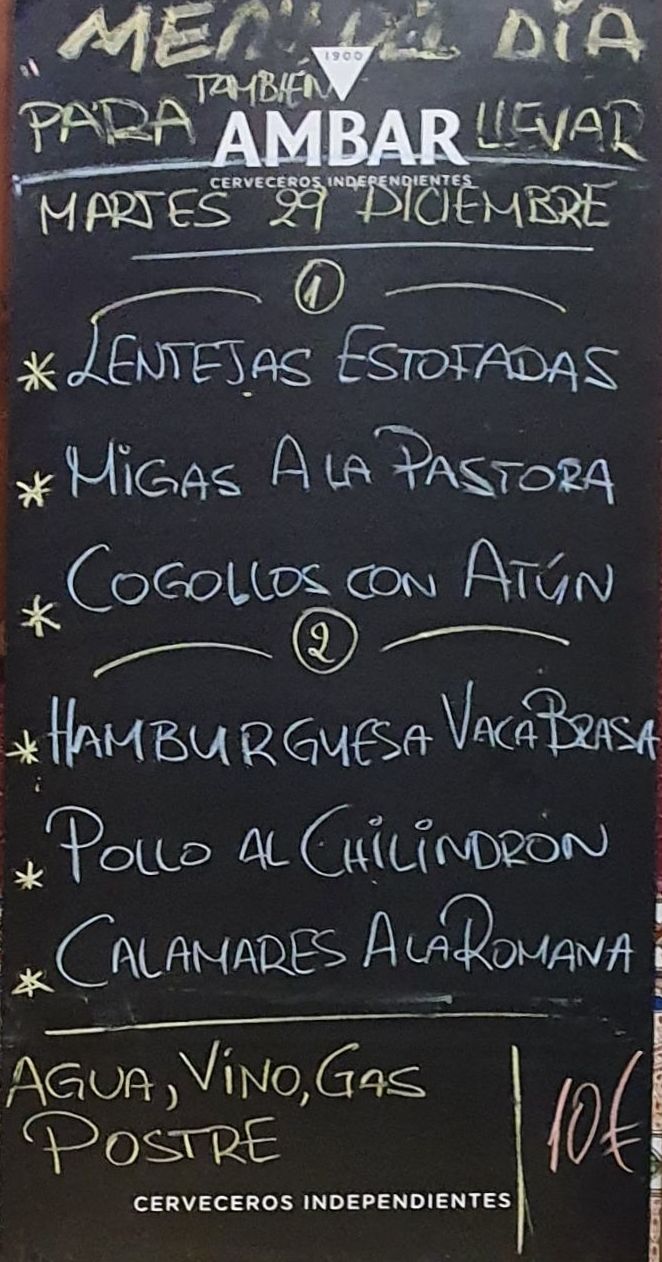 MENÚ DEL DÍA
1900
TAMBIÉN
PARA LLEVAR
AMBAR
CERVECEROS INDEPENDIENTES
MARTES 29 DICIEMBRE
1
* LENTEJAS ESTOFADAS
* MIGAS A LA PASTORA
* COGOLLOS CON ATÚN
2
* HAMBURGUESA VACA BRASA
* POLLO AL CHILINDRÓN
* CALAMARES A LA ROMANA
AGUA, VINO, GAS
POSTRE
10€
CERVECEROS INDEPENDIENTES